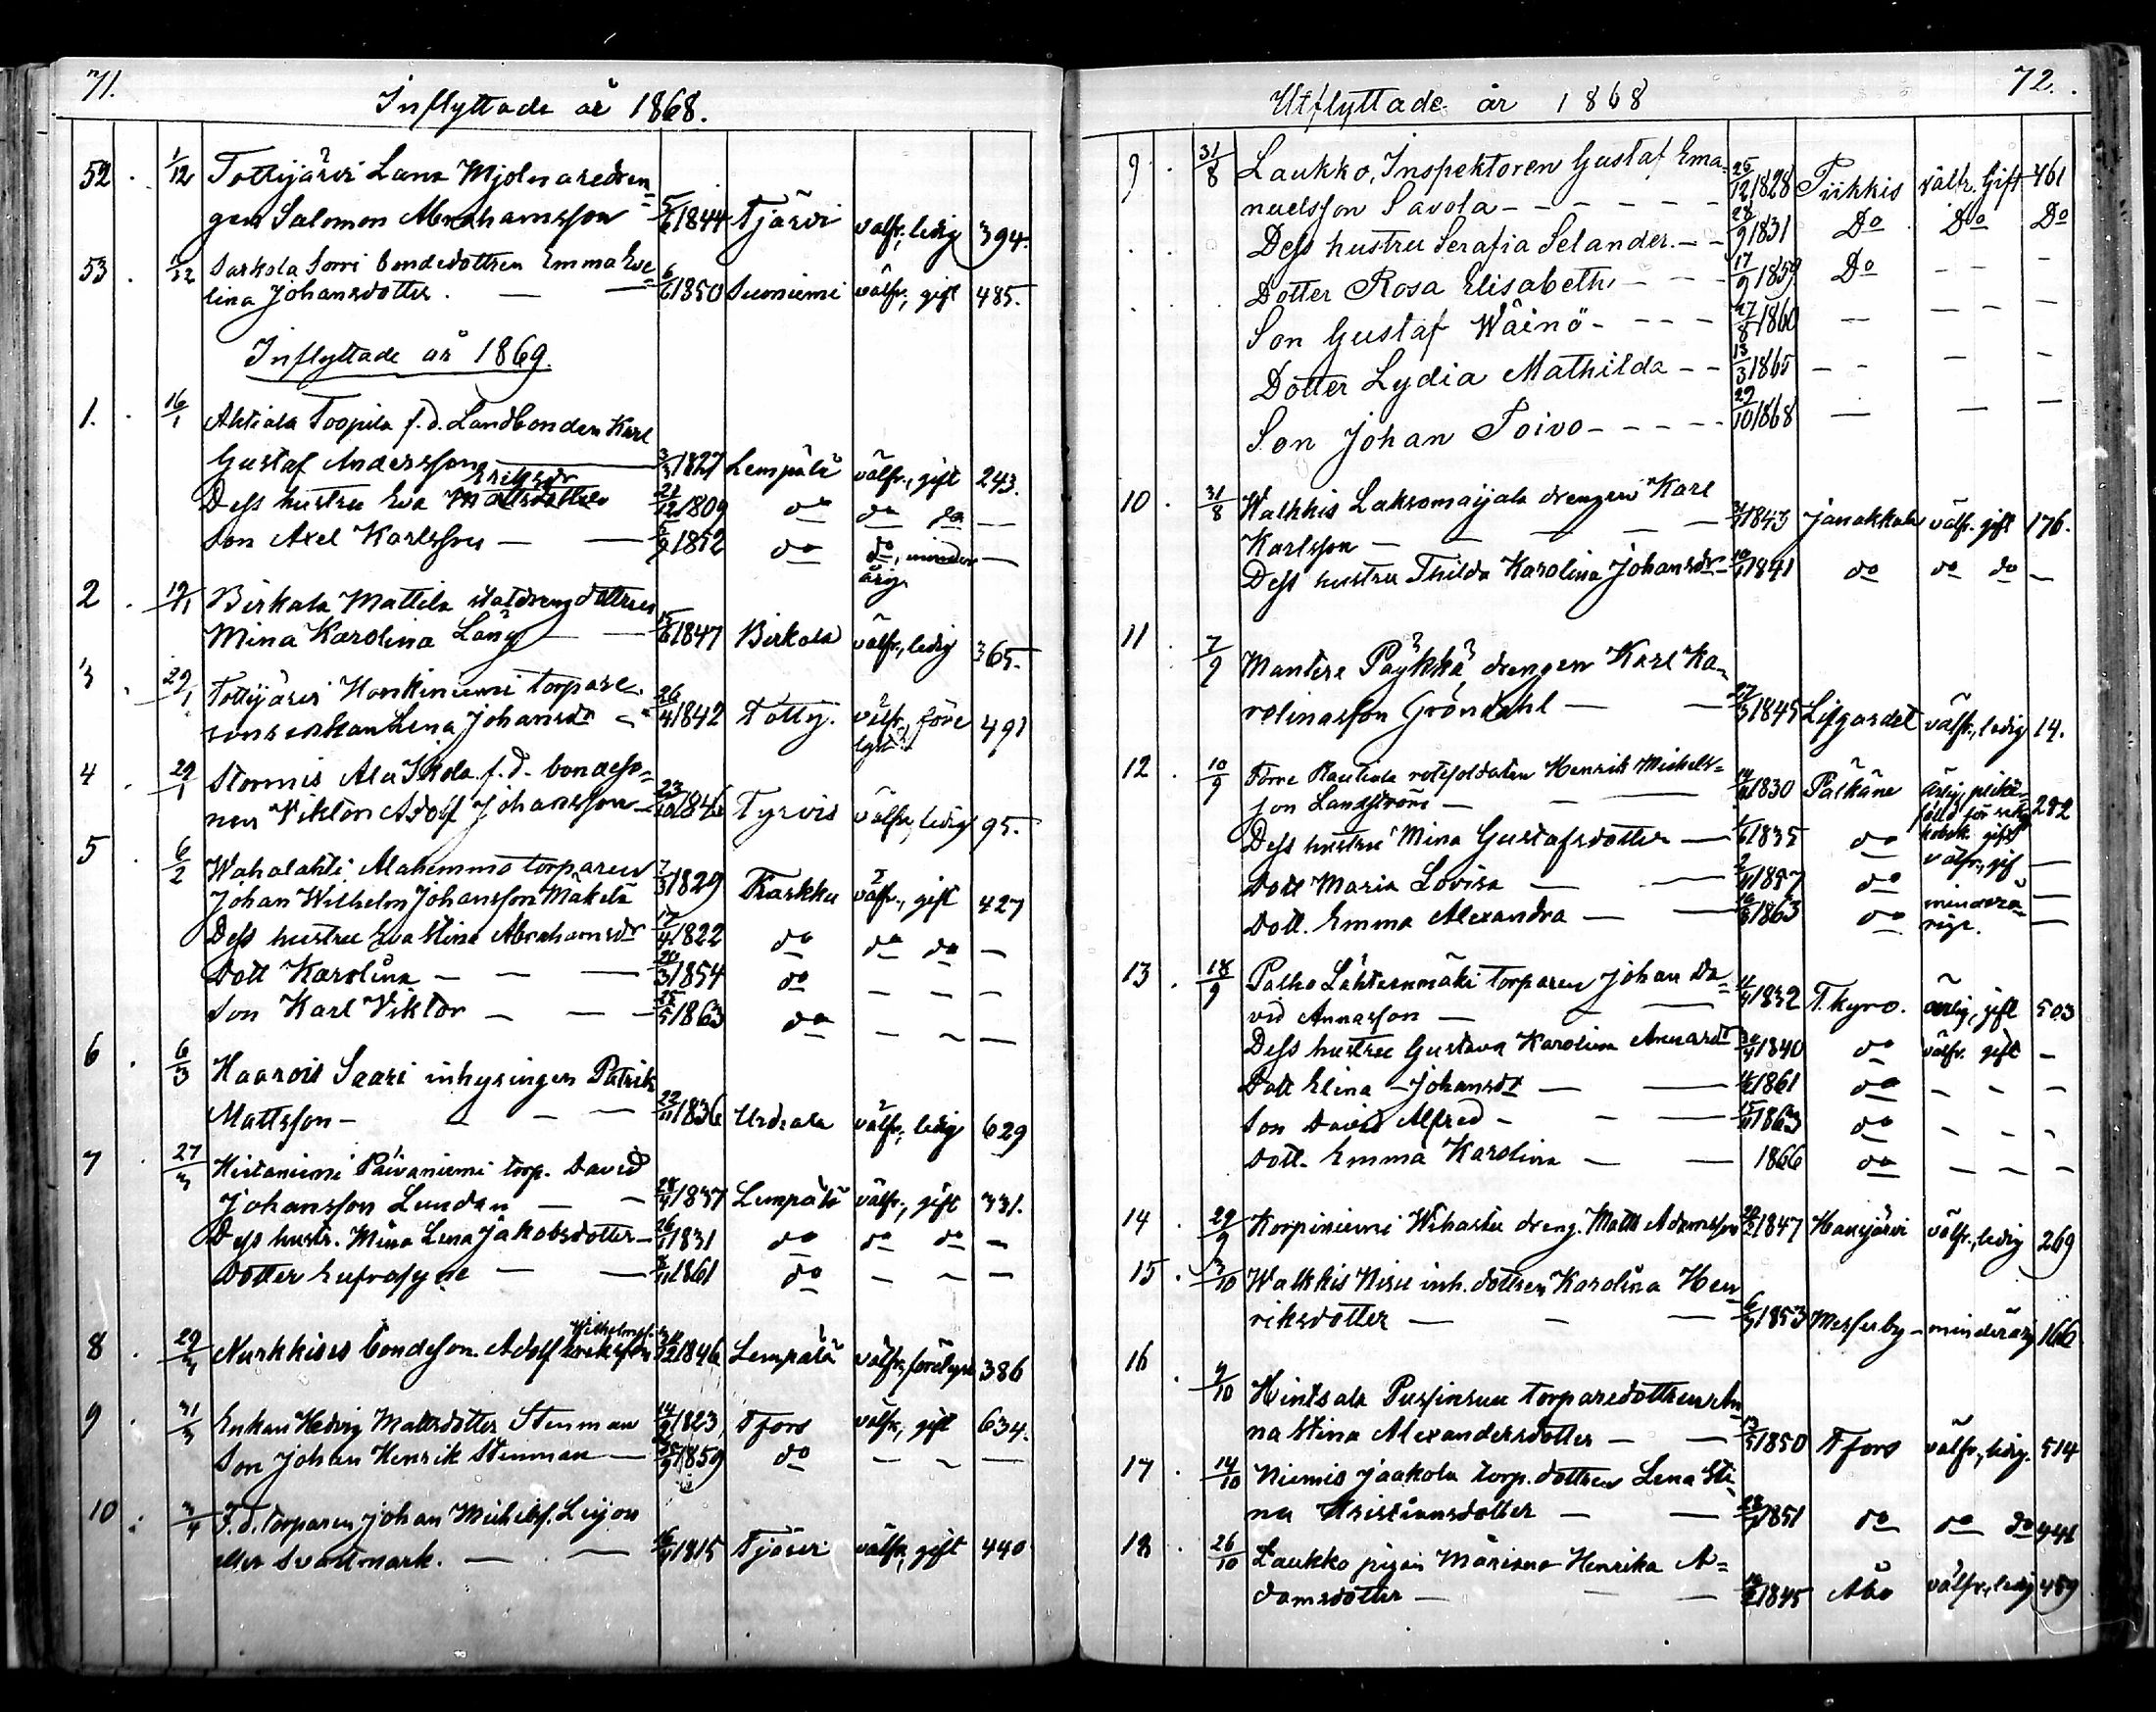 71.
Inflyttade år 1868.
52 . 1/12 Tottijärvi Lana Mjolnaredren=
gen Salomon Abrahamsson 5/6 1844 Tjärvi välfr, ledig 394.
53 . 1/12 Sarkola Sorri bondedottren Emma Eve
lina Johansdotter. — — 6/6 1850 Suoniemi välfr, gift 485.
Inflyttade år 1869.
1. . 16/1 Ahtiala Toopila f.d. Landbonden Karl
Gustaf Andersson — 3/3 1827 Lempälä välfr., gift 243.
Eriksdr
Dess hustru Eva Mattsdotter 21/12 1809 do do do —
Son Axel Karlsson — — 1852 do do, minder —
årig
2 . 19/1 Birkala Mattila statdrengdottren
Mina Karolina Lång — — 15/6 1847 Birkala välfr., ledig 365.
3 . 29/1 Tottijärvi Honkiniemi torpare
sons enkan Lena Johansdr 26/4 1842 Tottij. välfr, före 491
lyst
4 . 29/1 Stormis Ala Ikola f.d. bondeso=
nen Viktor Adolf Johansson — 23/10 1846 Tyrvis välfr, ledig 95.
5 . 6/2 Wahalahti, Alahemmo torparen
Johan Wilhelm Johansson Mäkelä 7/3 1829 Karkku välfr., gift 427
Dess hustru Eva Stina Abrahamsdr 17/4 1822 do do do —
Dott Karolina — — — 20/3 1854 do — — —
Son Karl Viktor — — — 25/5 1863 do — — —
6 . 6/3 Haarois Saari inhysingen Patrik
Mattsson — — — — 22/11 1836 Urdiala välfr., ledig 629
7 . 27/3 Hirtaniemi Päivaniemi torp. David
Johansson Lundan — — 28/4 1837 Lempälä välfr., gift 331.
Dess hustr. Mina Lena Jakobsdotter — 26/1 1831 do do do —
Dotter Eufrosyne — — 1861 do — — —
Wilhelmss.
8 . 29/3 Nurkkises bondeson. Adolf Eriksson 1846 Lempälä välfr, förelyst 386
9 . 31/3 Enkan Hedvig Mattsdotter Stenman 14/9 1823 Tfors välfr., gift 634.
Son Johan Henrik Stenman — 1859 do — — —
10 . 3/4 F.d. torparen Johan Michelss. Leijon
eller Svartmark. — — 1815 Tjärvi välfr, gift 440
72.
Utflyttade år 1868
9 . 31/8 Laukko, Inspektoren Gustaf Ema=
nuelsson Savola — — — — — 25/12 1828 Piikkis välfr. Gift 461
Dess hustru Serafia Selander. — — 28/9 1831 Do Do Do
Dotter Rosa Elisabeth — — — 17/9 1859 Do — — —
Son Gustaf Wäinö — — — — 27/8 1860 — — — —
Dotter Lydia Mathilda — — 13/3 1865 — — — —
Son Johan Toivo — — — — — 29/10 1868 — — —
10 . 31/8 Walkkis Laksomaijala drengen Karl
Karlsson — — — — 1843 Janakkala välfr. gift 176.
Dess hustru Thilda Karolina Johansdr — 1841 do do do —
11 . 7/9 Mantere Päykkä, drengen Karl Ka=
rolinasson Gröndahl — — 27/3 1845 Lifgardet välfr., ledig 14.
12 . 10/9 Torre Rautiala rotesoldaten Henrik Michels=
son Landström — — — 1830 Pälkäne ärlig
fälld för 282
Dess hustru Mina Gustafsdotter — 1835 do gift
välfr., gif —
Dott Maria Lovisa — — 1857 do minderå= —
Dott. Emma Alexandra — — 1863 do rige. —
13 . 18/9 Palho Lähteenmäki torparen Johan Da=
vid Annasson — — — 1832 T.kyro. ärlig, gift 503
Dess hustru Gustava Karolina 1840 do välfr. gift —
Dott Elina Johansdr — — 1861 do — — —
Son David Alfred — — — 1863 do — — —
Dott. Emma Karolina — — 1866 do — — —
14 . 29/9 Korpiniemi Wihastu dreng. Matts Adamsson 1847 Hausjärvi välfr., ledig 269
15 . 3/10 Walkkis Nisu inh. dottren Karolina Hen
riksdotter — — — 1853 Messuby — minderårig 166
16 . 9/10 Hintsala Pussinsuu torparedottren An
na Stina Alexandersdotter — — 1850 Tfors välfr., ledig. 514
17 . 14/10 Niemis Jaakola torp. dottren Lena Sti
na Kristiansdotter — — 1851 do do do 441
18 . 26/10 Laukko pigan Mariana Henrika A=
damsdotter — — — 1845 Åbo välfr, ledig 459